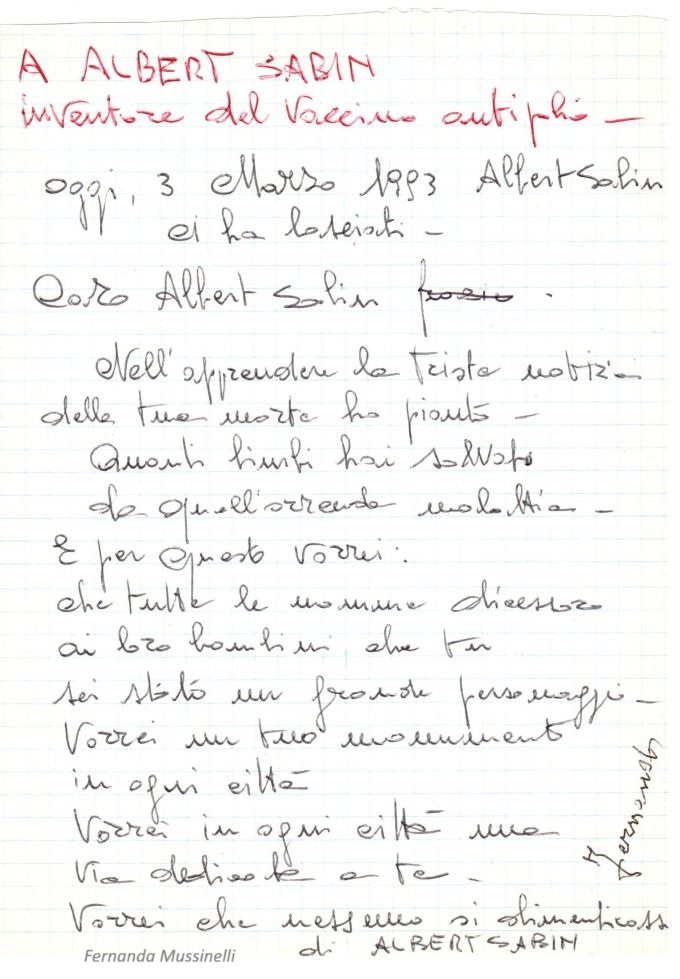 A ALBERT SABIN
inventore del Vaccino antipolio —
oggi, 3 Marzo 1993 Albert Sabin
ci ha lasciati —
Caro Albert Sabin
Nell'apprendere la Triste notizia
della tua morte ho pianto —
Quanti bimbi hai salvato
da quell'orrenda malattia —
E per questo vorrei:
che tutte le mamme dicessero
ai loro bambini che tu
sei stato un grande personaggio —
Vorrei un tuo monumento
in ogni città
Vorrei in ogni città una
Via dedicata a te —
Vorrei che nessuno si dimenticasse
di ALBERT SABIN
Fernanda Mussinelli